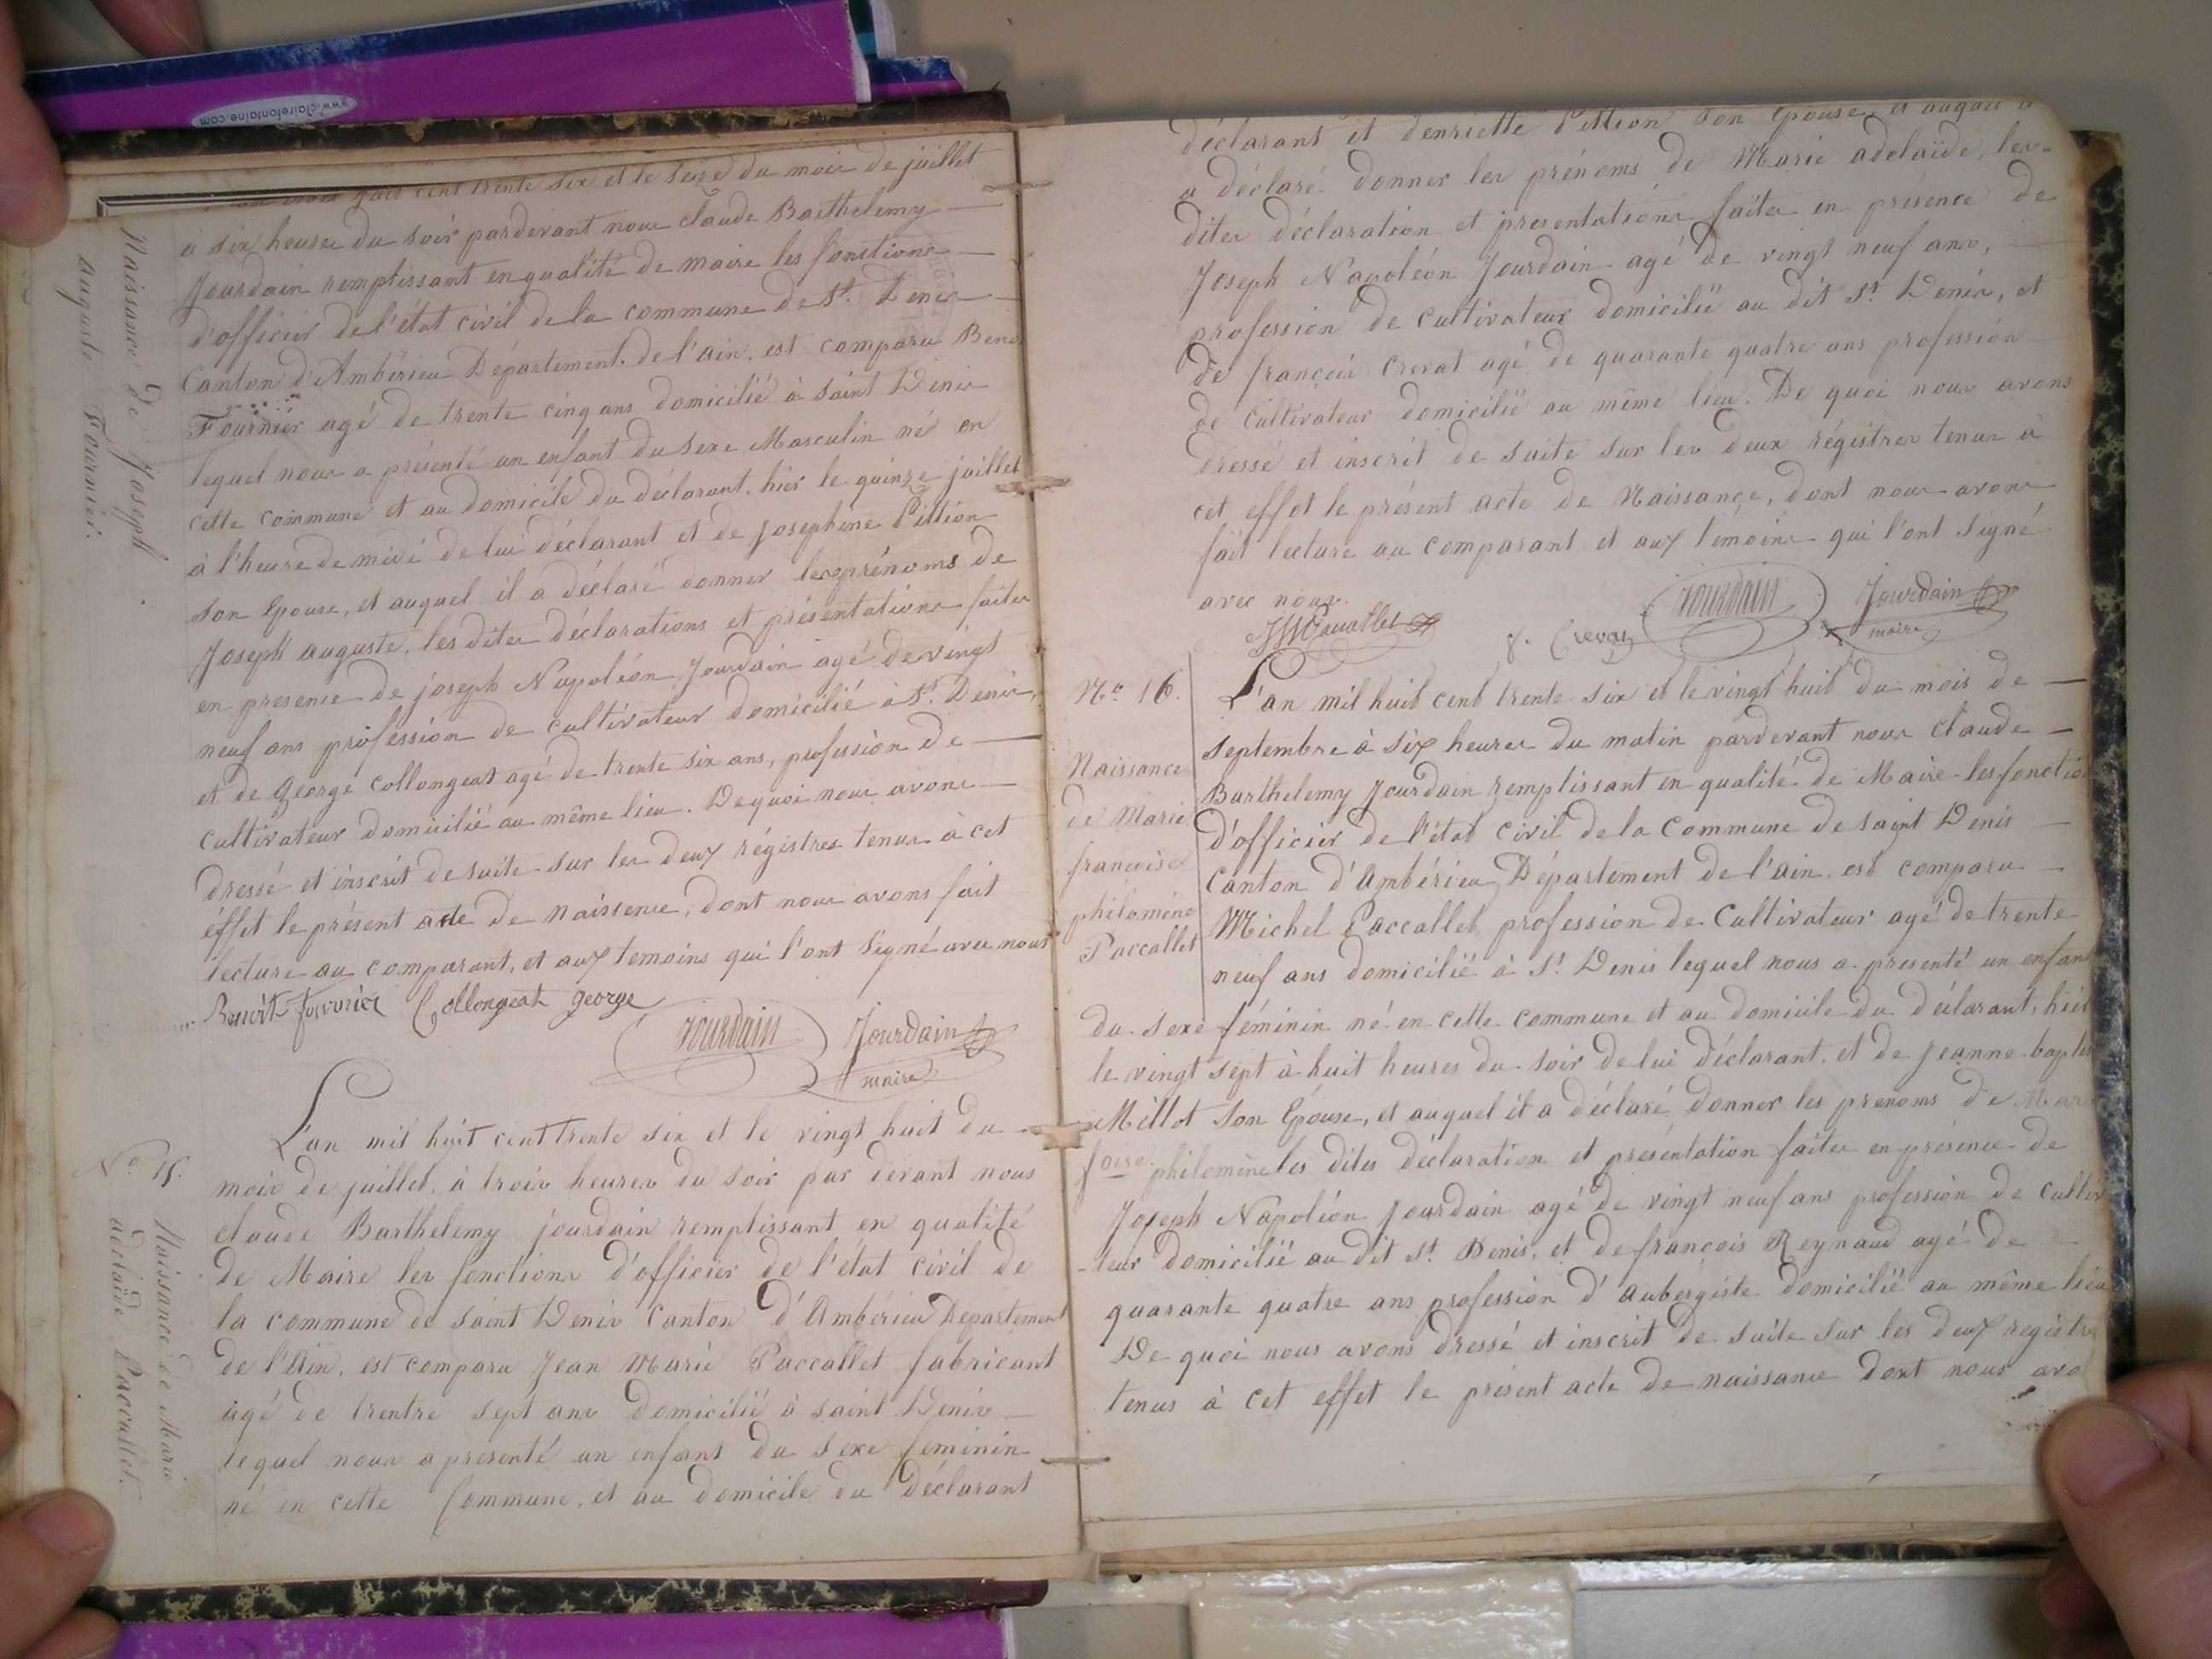 www.clairefontaine.com
huit cent trente six et le seize du mois de juillet
à six heures du soir pardevant nous claude Barthelemy
Jourdain remplissant en qualité de maire les fonctions
d'officier de l'état civil de la commune de St. Denis
Canton d'Ambérieu Département de l'ain, est comparu Benoi
Fournier agé de trente cinq ans domicilié à saint Denis
lequel nous a présenté un enfant du sexe Masculin né en
cette commune et au domicile du déclarant, hier le quinze juillet
à l'heure de midi de lui déclarant et de Josephine Pittion
son Epouse, et auquel il a déclaré donner les prénoms de
Joseph auguste, les dites déclarations et présentations faites
en presence de joseph Napoléon Jourdain agé de vingt
neuf ans profession de cultivateur domicilié à St. Denis,
et de George Collongeat agé de trente six ans, profession de
cultivateur domicilié au même lieu. De quoi nous avons
dressé et inscrit de suite sur les deux régistres tenus à cet
éffet le présent acte de naissence, dont nous avons fait
lecture au comparant, et aux temoins qui l'ont signé avec nous
Benoit fournier Collongeat george
Jourdain Jourdain
maire
Naissance de Joseph
auguste Fournier.
L'an mil huit cent trente six et le vingt huit du
mois de juillet, à trois heures du soir par devant nous
claude Barthelemy jourdain remplissant en qualité
de Maire les fonctions d'officier de l'état civil de
la commune de saint Denis Canton d'Ambérieu Departement
de l'Ain, est comparu Jean Marie Paccallet fabricant
agé de trentre sept ans domicilié à saint Denis
lequel nous a présenté un enfant du sexe feminin
né en cette Commune, et au domicile du déclarant
No 15.
Naissance de Marie
adelaïde Paccallet.
déclarant et henriette Pittion son Epouse, et auquel il
a déclaré donner les prénoms de Marie adelaïde, les
dites déclaration et presentations faites en présence de
Joseph Napoléon Jourdain agé de vingt neuf ans,
profession de cultivateur domicilié au dit St Denis, et
de françois Crevat agé de quarante quatre ans profession
de cultivateur domicilié au même lieu. De quoi nous avons
dressé et inscrit de suite sur les deux régistres tenus à
cet effet le présent acte de Naissance, dont nous avons
fait lecture au comparant et aux témoins qui l'ont signé
avec nous.
f. Crevat Jourdain Jourdain
maire
No 16.
Naissance
de Marie
francoise
philomène
Paccallet
L'an mil huit cent trente six et le vingt huit du mois de
septembre à six heures du matin pardevant nous claude
Barthelemy Jourdain remplissant en qualité de Maire les fonctio
d'officier de l'état civil de la commune de saint Denis
Canton d'Ambérieu, Département de l'ain, est comparu
Michel Paccallet profession de Cultivateur agé de trente
neuf ans domicilié à St Denis lequel nous a presenté un enfan
du sexe féminin né en cette commune et au domicile du déclarant, hier
le vingt sept à huit heures du soir de lui déclarant et de jeanne baptis
Millot son Epouse, et auquel il a déclaré donner les prenoms de Mari
foise philomène les dites declaration et présentation faites en présence de
Joseph Napoléon Jourdain agé de vingt neuf ans profession de cultiv
-teur domicilié au dit St. Denis, et de françois Reynaud agé de
quarante quatre ans profession d'aubergiste domicilié au même lieu
De quoi nous avons dressé et inscrit de suite sur les deux registre
tenus à cet effet le présent acte de naissance dont nous avo